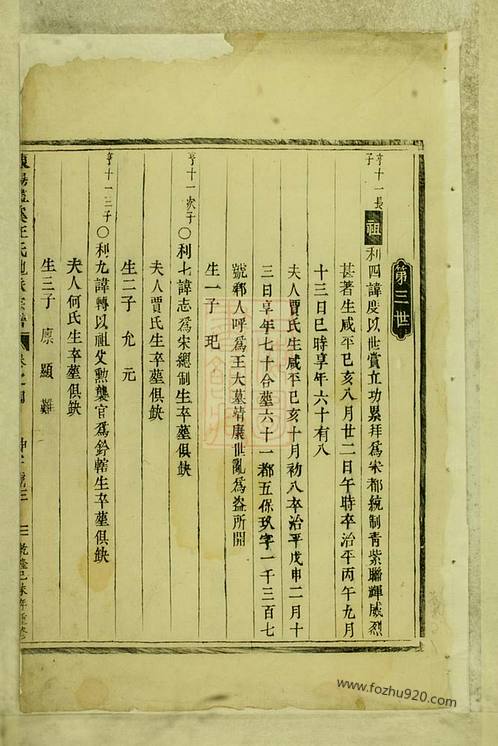 第三世
亨十一長子
祖 利四諱度以世賞立功累拜爲宋都統制青紫聯輝威烈
甚著生咸平己亥八月廿二日午時卒治平丙午九月
十三日巳時享年六十有八
夫人賈氏生咸平己亥十月初八卒治平戊申二月十
三日享年七十合墓六十一都五保玖字一千三百七
號鄉人呼爲王大墓靖康世亂爲盜所開
生一子 玘
亨十一次子 〇利七諱志爲宋總制生卒墓俱缺
夫人賈氏生卒墓俱缺
生二子 允 元
亨十一三子 〇利九諱轉以祖父勲襲官爲鈐轄生卒墓俱缺
夫人何氏生卒墓俱缺
生三子 原 顯 難
王氏
www.fozhu920.com